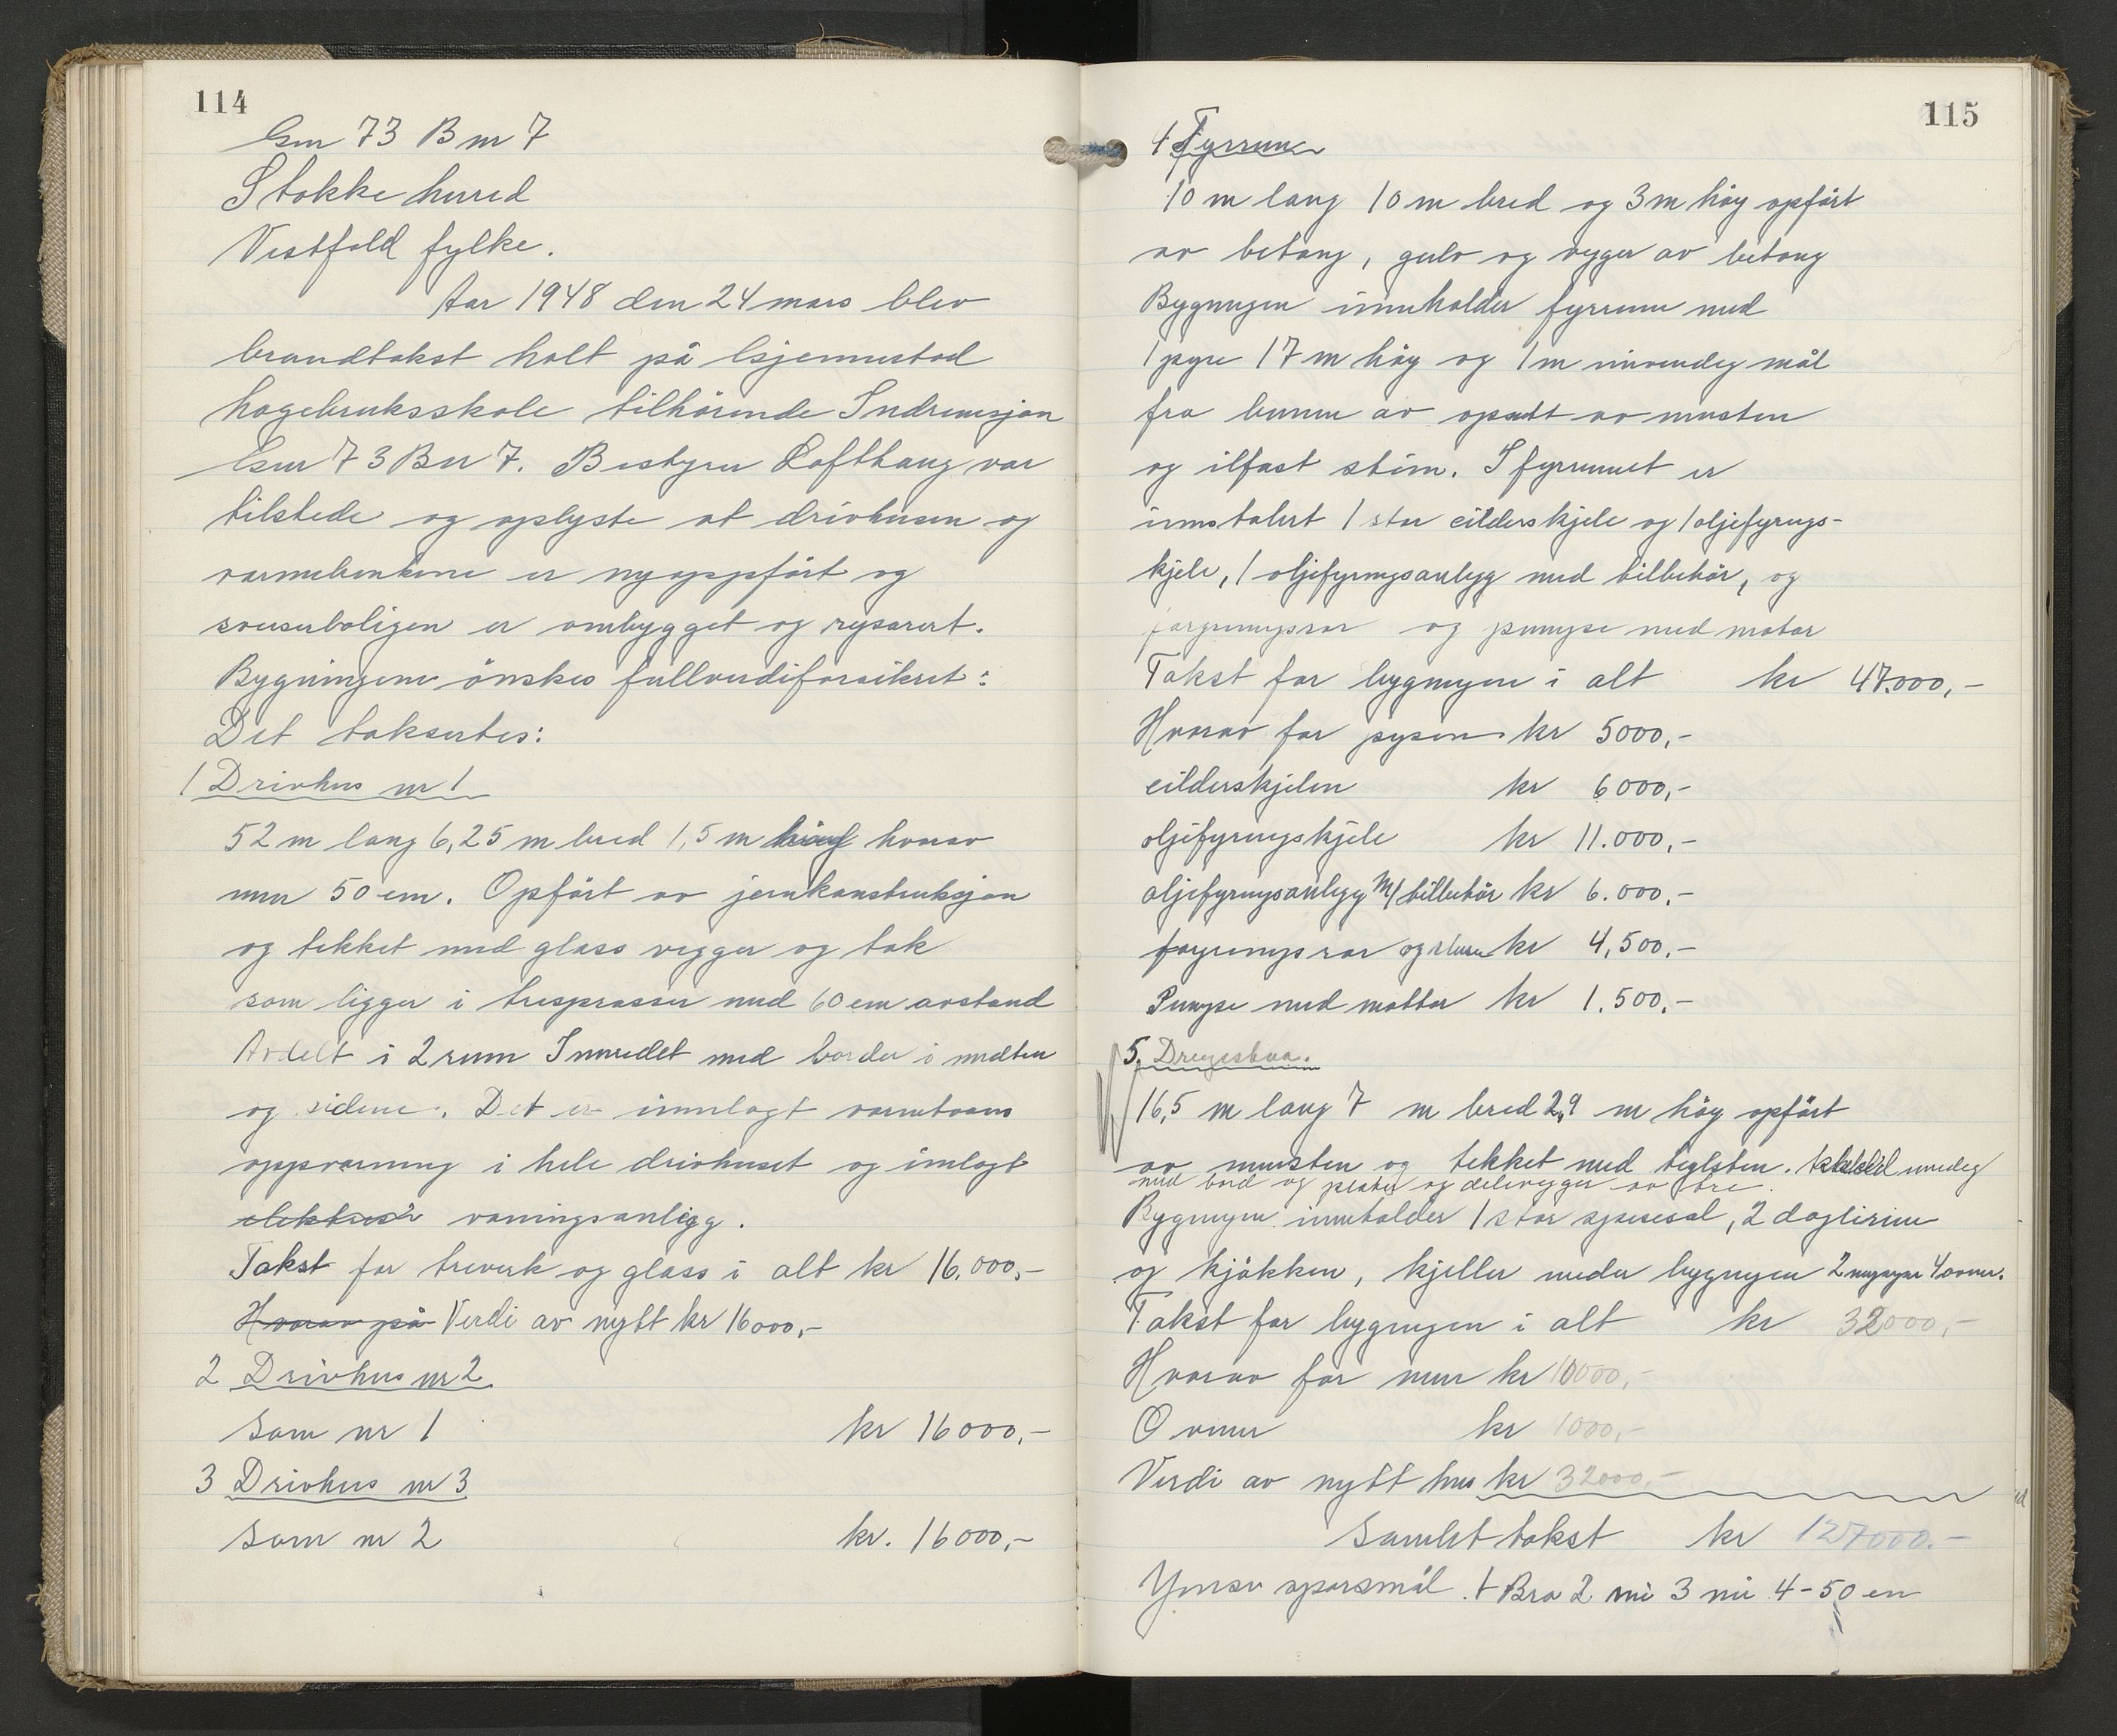 114
Gnr 73 Bnr 7
Stokke herred
Vestfold fylke.
Aar 1948 den 24 mars blev
brandtakst holt på Gjennestad
hagebruksskole tilhörende Indremisjon
Gnr 73 Bnr 7. Bestyrer Lofthaug var
tilstede og oplyste at drivhusen og
varmebenkene er nyoppfört og
sveiserboligen er ombygget og
Bygningene önskes fullverdiforsikret:
Det taksertes:
1 Drivhus nr 1
52 m lang 6,25 m bred 1,5 m hvorav
mur 50 cm. Opfört av jernkonstruksjon
og tekket med glass vegger og tak
som ligger i tresprosser med 60 cm avstand
Avdelt i 2 rum Innredet med border i midten
og sidene. Det er innlagt varmtvans
oppvarming i hele drivhuset og inlagt
elektrisk vaningsanlegg.
Takst for treverk og glass i alt kr 16.000,-
Hvorav på Verdi av nytt kr 16000,-
2 Drivhus nr 2
Som nr 1 kr 16000,-
3 Drivhus nr 3
Som nr 2 kr. 16000,-
115
4 Fyrrum
10 m lang 10 m bred og 3 m höy opfört
av betong, gulv og vegger av betong
Bygningen inneholder fyrrum med
1 pipe 17 m höy og 1 m invendig mål
fra bunnen av opsatt av mursten
og ilfast stein. I fyrrummet er
innstalert 1 stor eilderskjele og 1 oljefyrings-
kjele, 1 oljefyringsanlegg med tilbehör, og
forgreningsrör og pumpe med motor
Takst for bygningen i alt kr 47.000,-
Hvorav for pipen kr 5000,-
eilderskjelen kr 6000,-
oljefyringskjele kr 11.000,-
oljefyringsanlegg m/ tilbehör kr 6.000,-
forgreningsrör og kr 4,500.-
Pumpe med mottor kr 1.500.-
5.
16,5 m lang 7 m bred 2,9 m höy opfört
av mursten og tekket med teglsten. inredig
med bord og plater og delevegger av tre.
Bygningen inneholder 1 stor spisesal, 2 daglirum
og kjökken, kjeller under bygningen 2 murpiper 4 ovner.
Takst for bygningen i alt kr 32000,-
Hvorav for mur kr 10000,-
Ovner kr 1000,-
Verdi av nytt hus kr 32000,-
Samlet takst kr 127000.-
Ymse spörsmål. 1 Bra 2 nei 3 nei 4-50 en